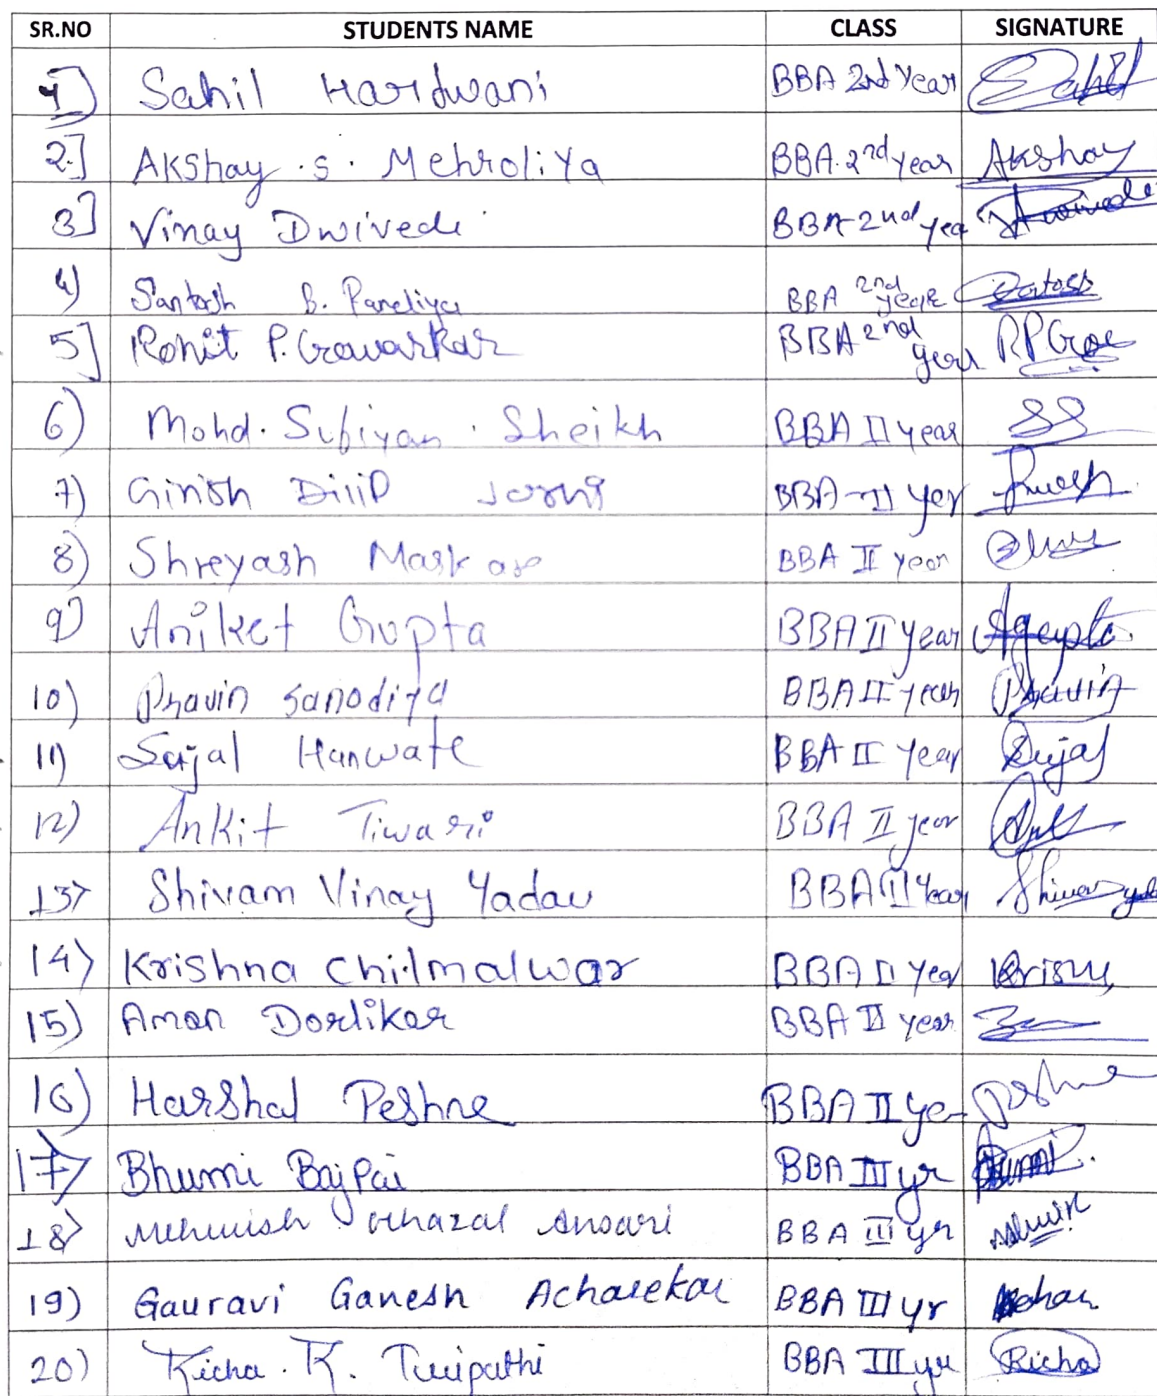 SR.NO STUDENTS NAME CLASS SIGNATURE
1] Sahil Hardwani BBA 2nd Year Sahil
2] Akshay .S. Mehroliya BBA.2nd year Akshay
3] Vinay Dwivedi BBA-2nd yea
4) Santosh B. Pandiya BBA 2nd year
5] Rohit P. Gawarkar BBA 2nd year
6) Mohd. Sufiyan. Sheikh BBA II year SS
7) Girish Dilip Joshi BBA-II yer
8) Shreyash Maskare BBA II year
9) Aniket Gupta BBA II year Agupta.
10) Pravin Sanodiya BBA II year Pravin
11) Sujal Hanwate BBA II Year Sujal
12) Ankit Tiwari BBA II year
13> Shivam Vinay Yadav BBA II Year
14) Krishna Chilmalwar BBA II Year
15) Aman Dorlikar BBA II year
16) Harshal Peshne BBA II ye Peshne
17) Bhumi Bajpai BBA III yr
18) Mehwish Ghazal Ansari BBA III yr
19) Gauravi Ganesh Acharekar BBA III yr
20) Richa. R. Tripathi BBA III yr Richa